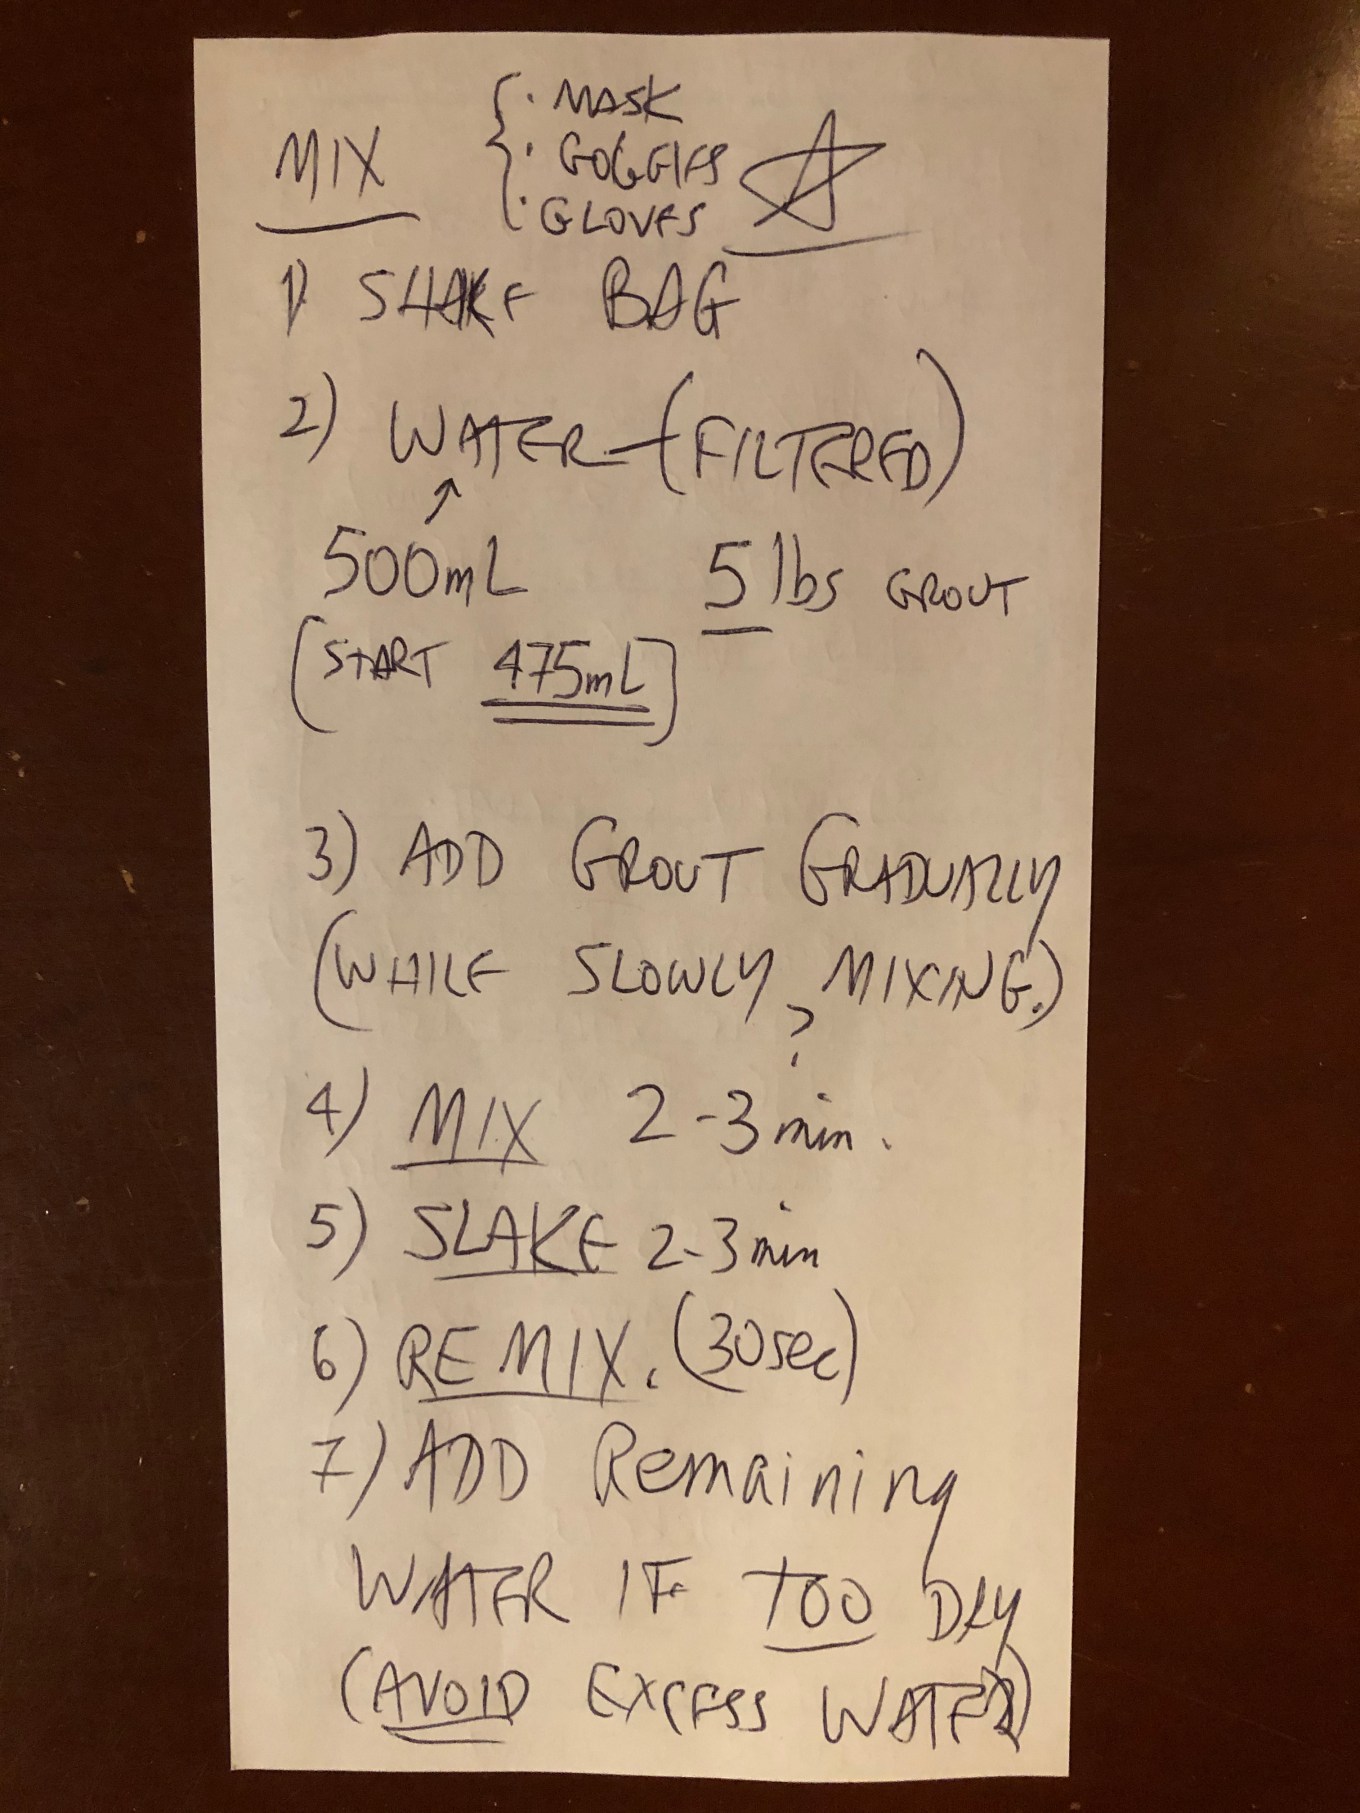 MIX
· MASK
· GOGGLES
· GLOVES
1) SHAKE BAG
2) WATER - (FILTERED)
500mL 5 lbs GROUT
(START 475mL)
3) ADD GROUT GRADUALLY
(WHILE SLOWLY MIXING.)
?
4) MIX 2-3 min.
5) SLAKE 2-3 min
6) REMIX. (30sec)
7) ADD Remaining
WATER IF TOO DRY
(AVOID EXCESS WATER)